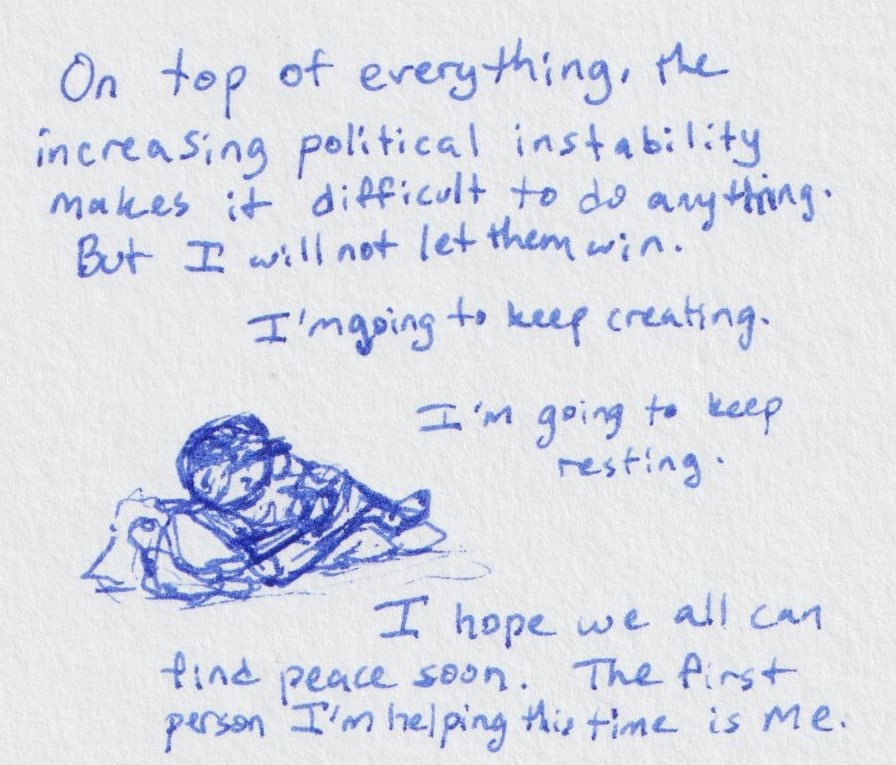 On top of everything, the
increasing political instability
makes it difficult to do anything.
But I will not let them win.
I'm going to keep creating.
I'm going to keep
resting.
I hope we all can
find peace soon. The first
person I'm helping this time is me.